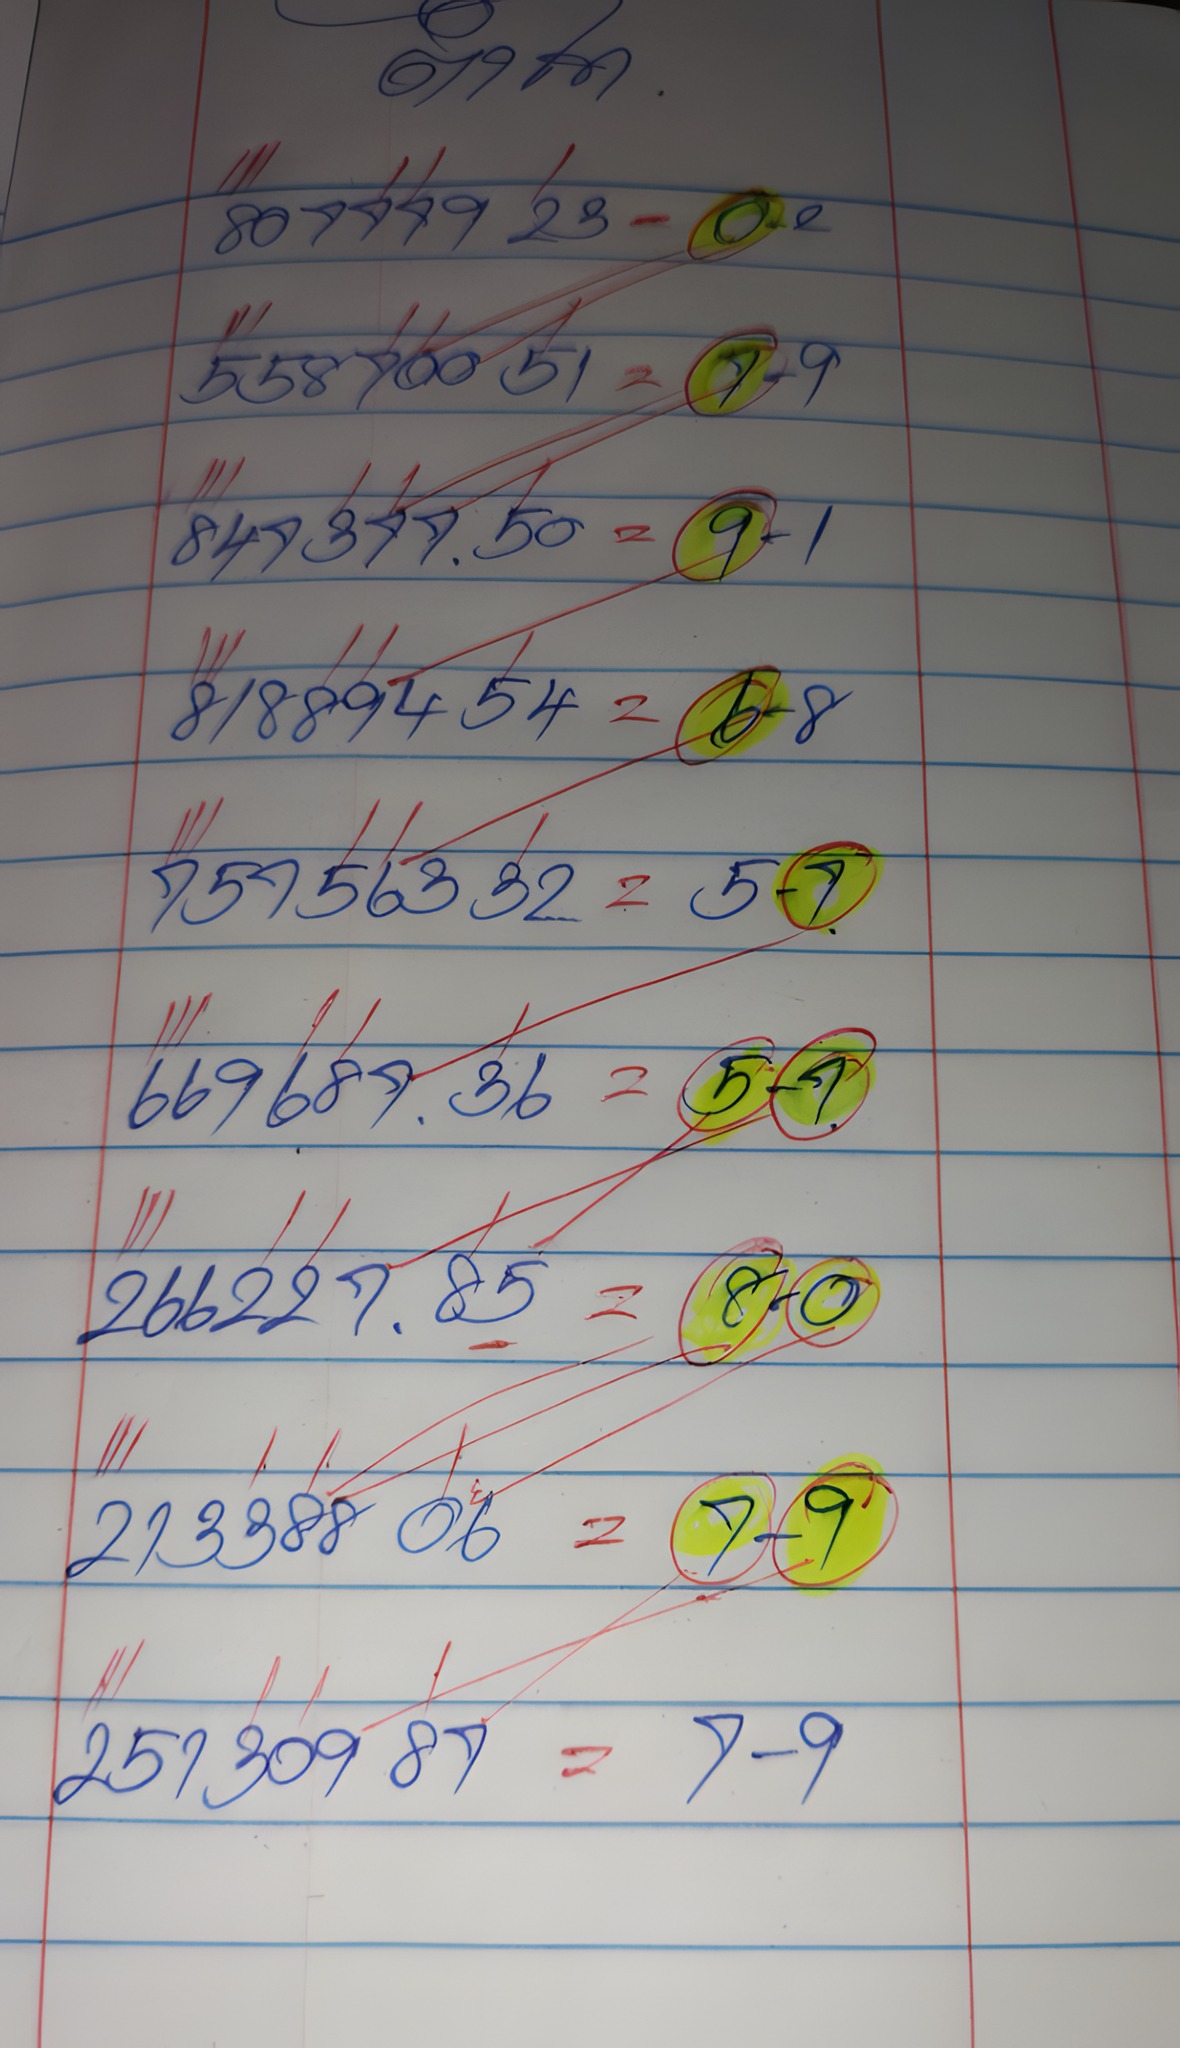 807779 23 - 0-2
558700 51 = 7-9
847377.50 = 9-1
818894 54 = 6-8
757563 32 = 5-7.
669687.36 = 5-7.
266227.85 = 8-0
213388 06 = 7-9
257309 87 = 7-9